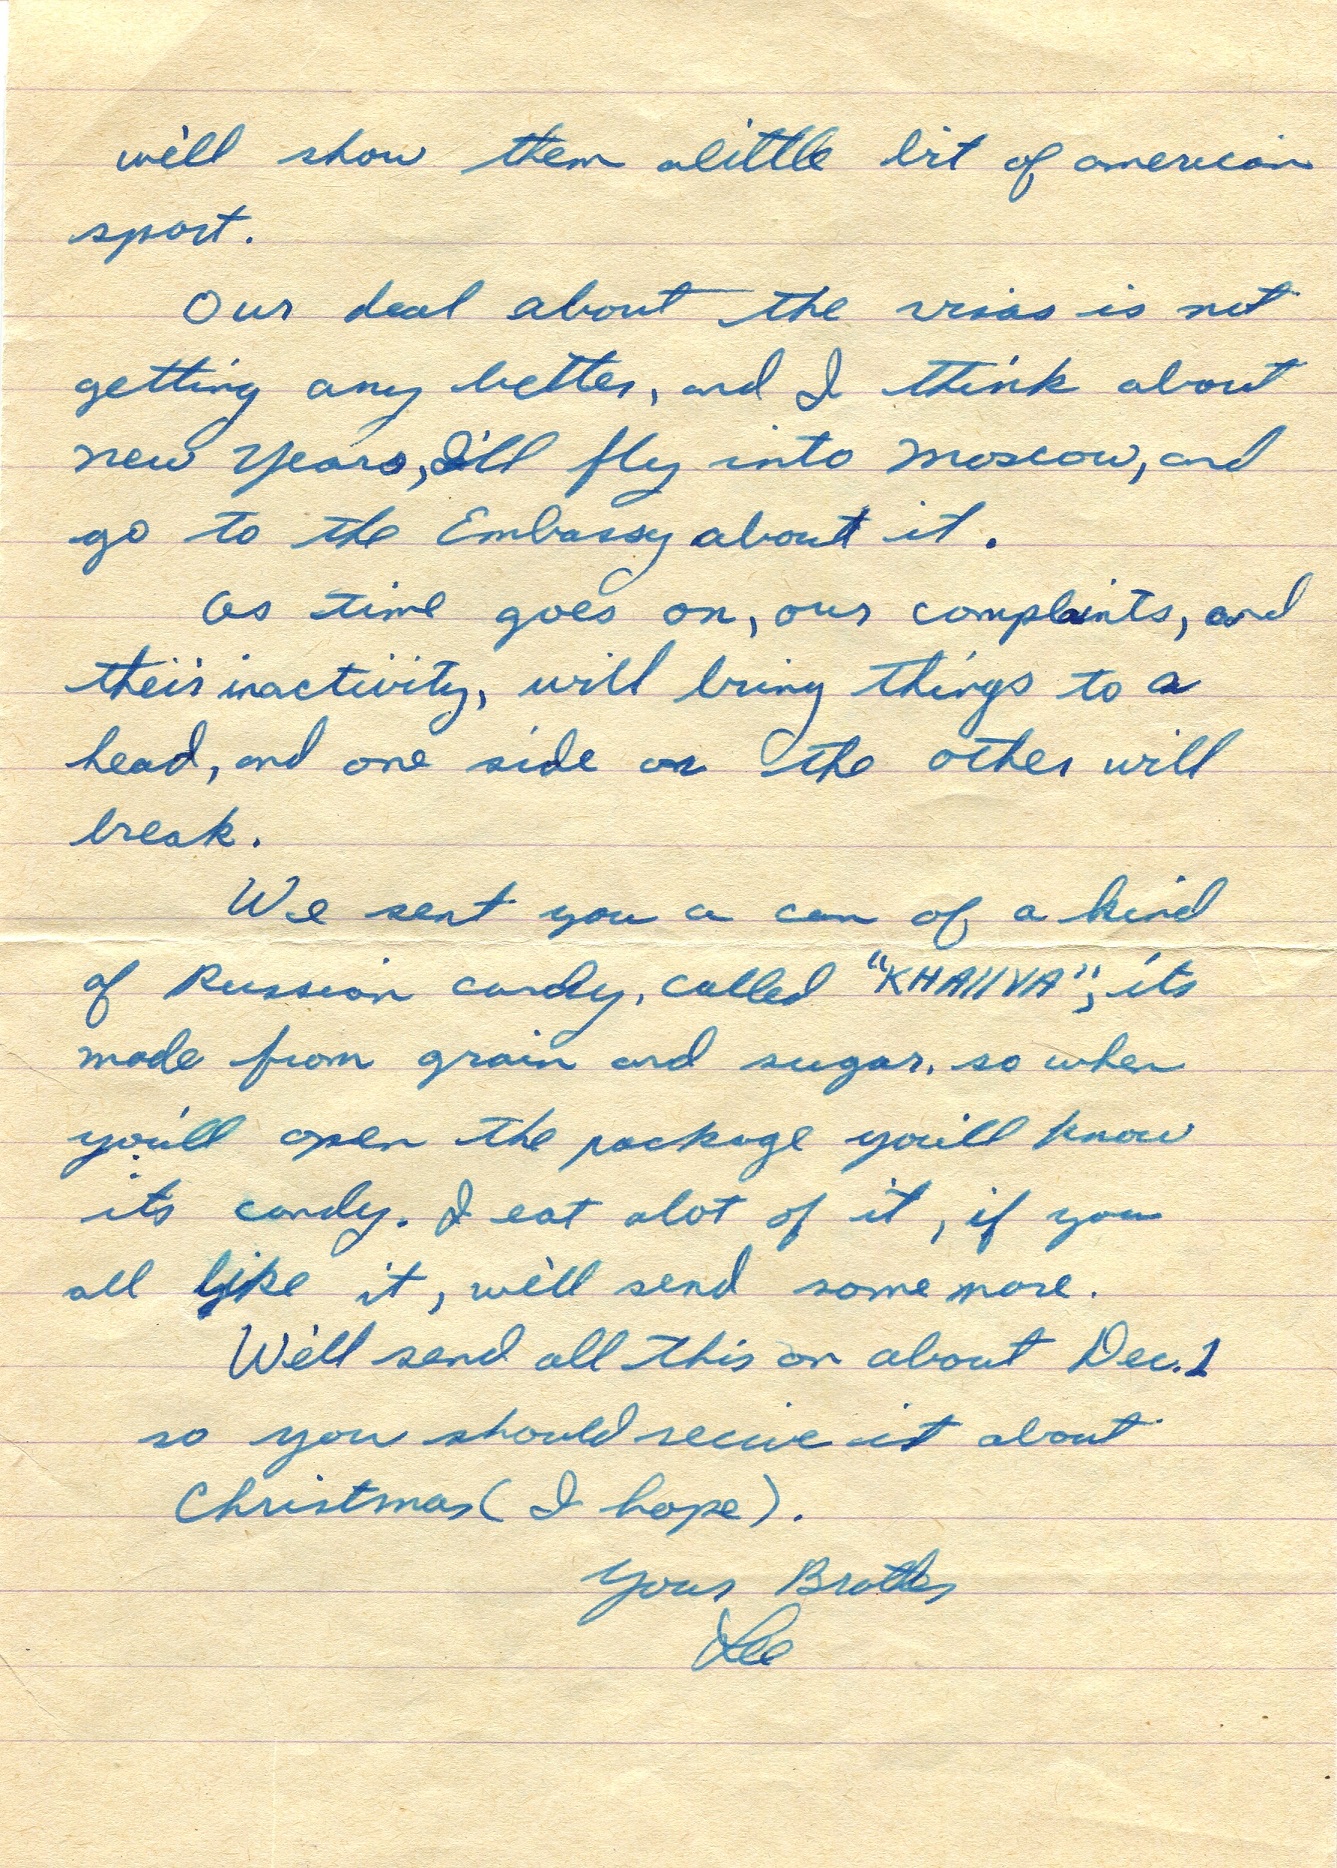 we'll show them alittle bit of american
sport.
Our deal about the visas is not
getting any better, and I think about
new years, I'll fly into moscow, and
go to the Embassy about it.
As time goes on, our complaints, and
their inactivity, will bring things to a
head, and one side or the other will
break.
We sent you a can of a kind
of Russian candy, called "KHAllVA"; it's
made from grain and sugar. so when
you'll open the package you'll know
its candy. I eat alot of it, if you
all like it, we'll send some more.
We'll send all this on about Dec. 1
so you should recive it about
Christmas (I hope).
Your Brother
Lee